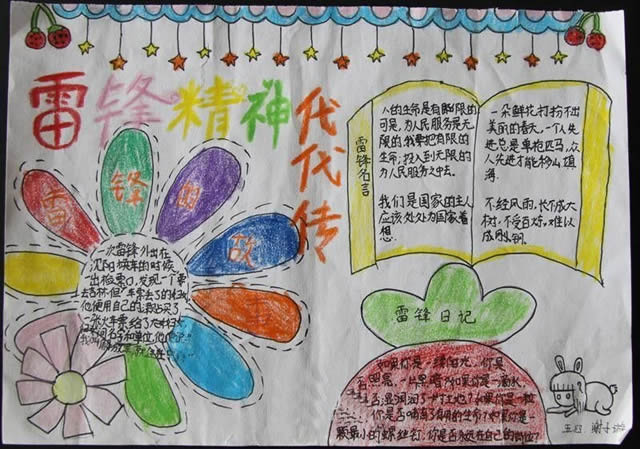 雷锋精神代代传
雷锋的故事
一次雷锋外出在
沈阳换车的时候
出检票口,发现一个
他使用自己的
一张火车票
雷锋名言
人的生命是有限的
可是,为人民服务是无
限的,我要把有限的
生命,投入到无限的
为人民服务之中去。
我们是国家的主人
应该处处为国家着
想.
一朵鲜花打扮不出
美丽的春天,一个人先
进总是单枪匹马,众
人先进才能移山填
海.
不经风雨,长不成大
树,不受百炼,难以
成钢.
雷锋日记
如果你是一线阳光,你是
否照亮
一片黑暗?如果你是一滴水,
否滋润了一寸土地?如果你是一粒
你是否哺育了有用的生命?如果你是一
颗最小的螺丝钉,你是否永远在自己的岗位?